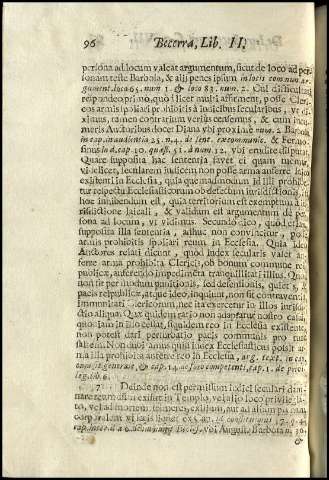 96 Becerra, Lib. II.
persona ad locum valeat argumentum, sicut de loco ad per-
sonam teste Barbosa, & alij penes ipsum in locis commun. ar-
gument. loco 65. num. 1. & loco 83. num. 2. Cui difficultati
respondeo primo, quod licet multi affirment, posse Cleri-
cos armis spoliari prohibitis à Iudicibus secularibus, vt di-
ximus, tamen contrarium verius censemus, & cum innu-
meris Auctoribus docet Diana vbi proximè num. 2. Barbosa,
in cap. in audientia 25. n. 4. de sent. excommunic. &
d. cap. 30. quæst. 51. à num. 12. Vbi eruditè
Quare supposita hac sententia favet ei quam tuemur,
videlicet, secularem iudicem non posse arma auferre laico
existenti in Ecclesia, quia quemadmodum id illi prohibe-
tur respectu Ecclesiasticorum ob defectum iurisdictionis,
hoc inhibendum est, quia territorium est exemptum à iu-
risdictione laicali, & validum est argumentum de per-
sona ad locum, vt vidimus. Secundo dico, quod etiam
supposita illa sententia, adhuc non convincitur, posse
armis prohibitis spoliari reum in Ecclesia. Quia ideo
Auctores relati dicunt, quod iudex secularis valet au-
ferre arma prohibita Clerici, ob bonum commune rei-
publicæ, auferendo impedimẽta tranquillitati illius. Quod
non fit per modum punitionis, sed defensionis, quiet
pacis reipublicæ, atque ideo, inquiunt, non sit contravenire
Immunitati Clericorum, nec ita exercetur in illos iurisdi-
ctio aliqua. Quæ quidem ratio non adaptatur nostro casui,
quoniam in illo cessat, siquidem reo in Ecclesia existente,
non potest dari perturbatio pacis communis pro tunc
saltem. Non dubito tamen quin Iudex Ecclesiasticus possit ar-
ma illa prohibita auferre reo in Ecclesia, arg. text. in cap.
& cap. 14. de foro competenti, cap. 1. de privi-
leg. lib. 6.
7 Deinde non est permissum iudici seculari dam-
nare reum
vel ad mortem